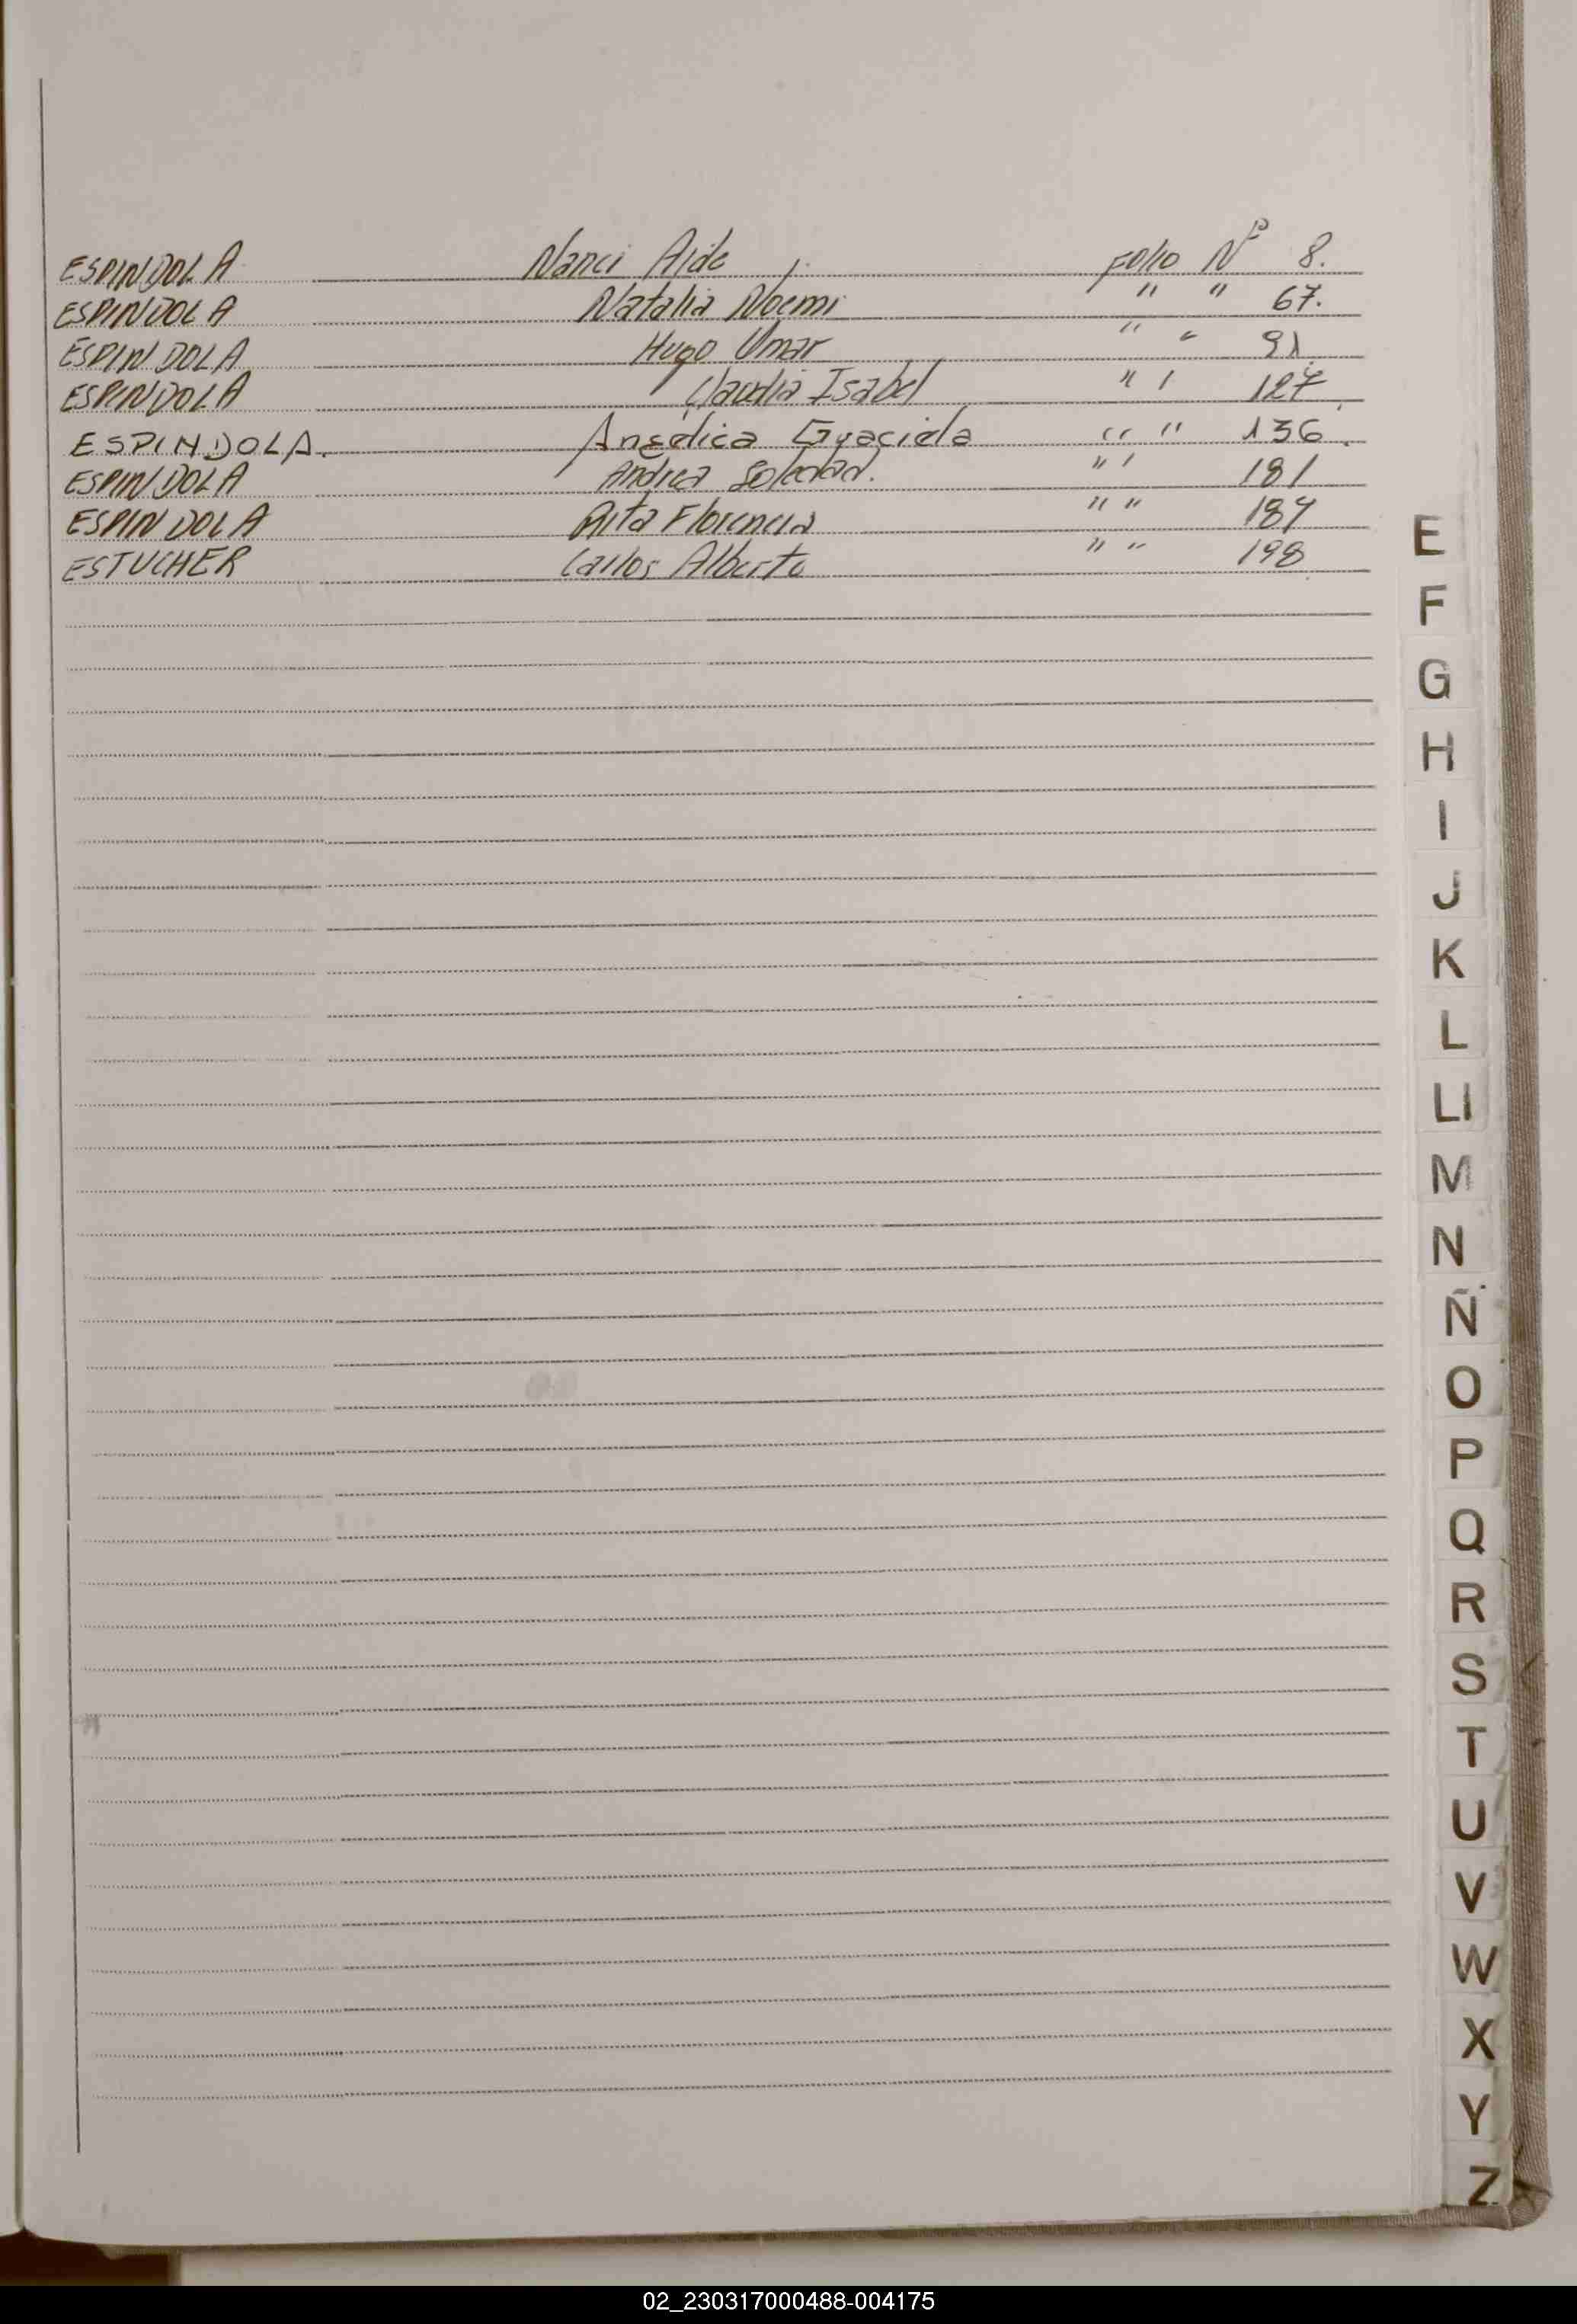 ESPINDOLA Nanci Aide Folio Nº 8.
ESPINDOLA Natalia Noemi " " 67.
ESPINDOLA Hugo Omar " " 91.
ESPINDOLA Claudia Isabel " " 127
ESPINDOLA. Angélica Graciela " " 136.
ESPINDOLA Andrea Soledad. " " 181
ESPINDOLA Rita Florencia " " 187
ESTUCHER Carlos Alberto " " 198
E
F
G
H
I
J
K
L
Ll
M
N
Ñ
O
P
Q
R
S
T
U
V
W
X
Y
Z
02_230317000488-004175